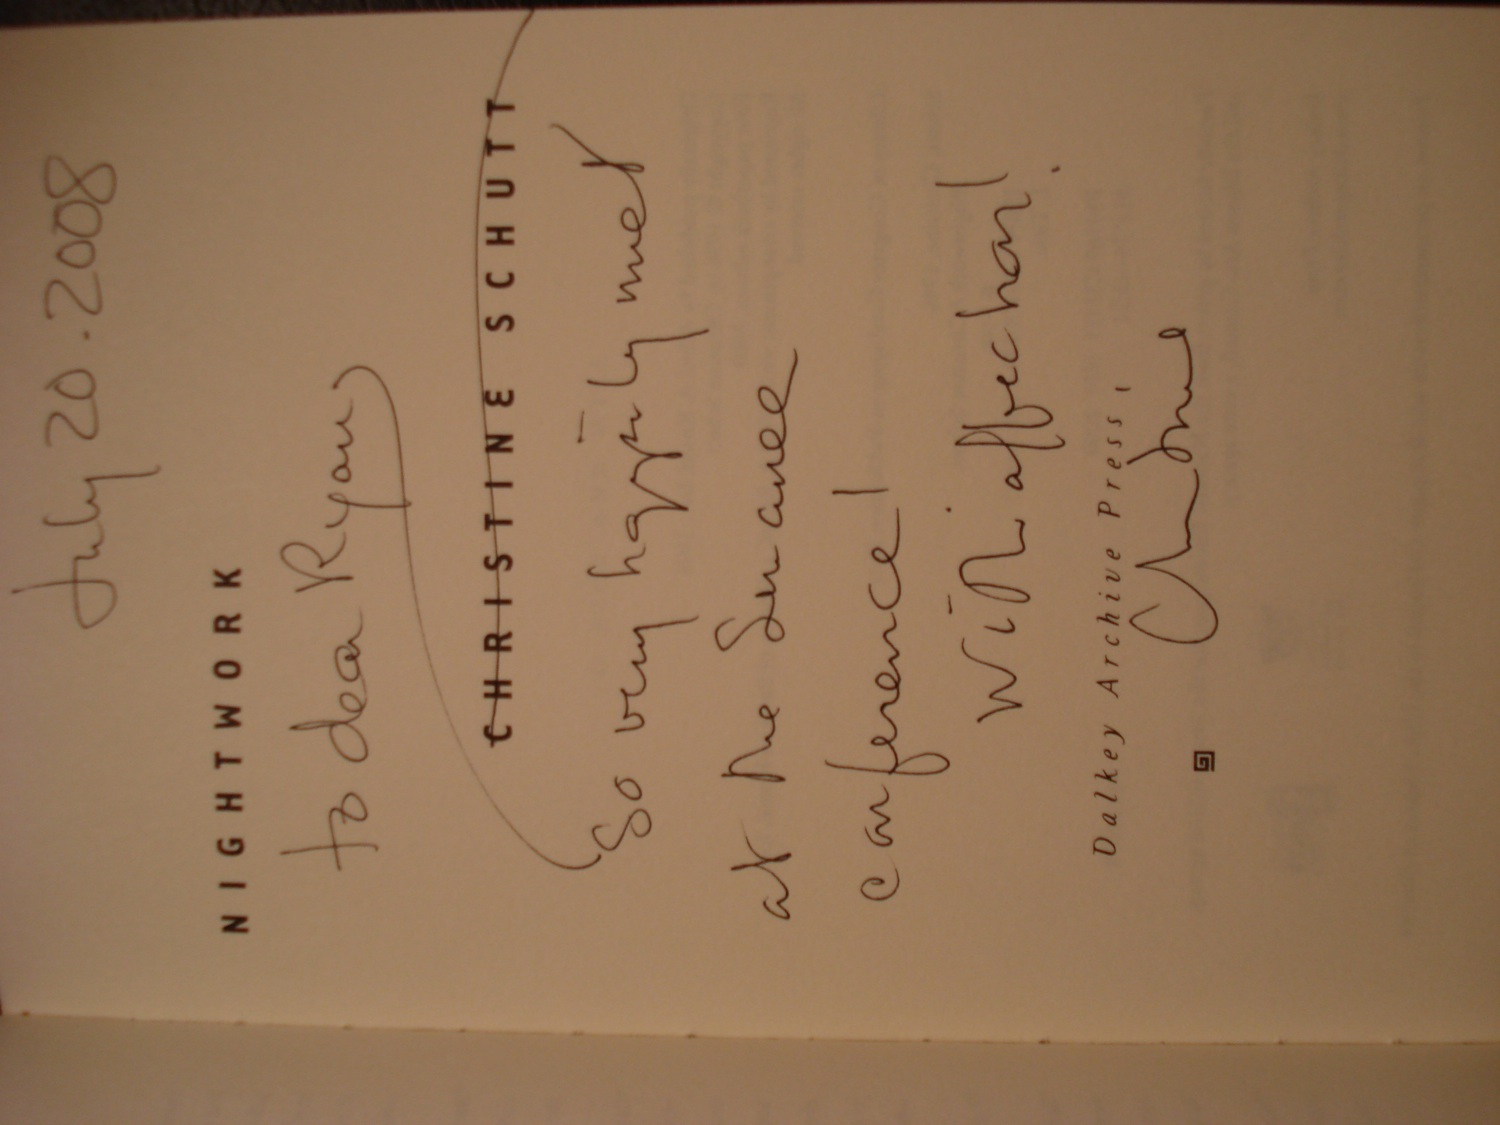 July 20.2008
NIGHTWORK
to dear Ryan,
CHRISTINE SCHUTT
So very happily met
at the Sewanee
conference!
With affection!
Dalkey Archive Press,
Christine